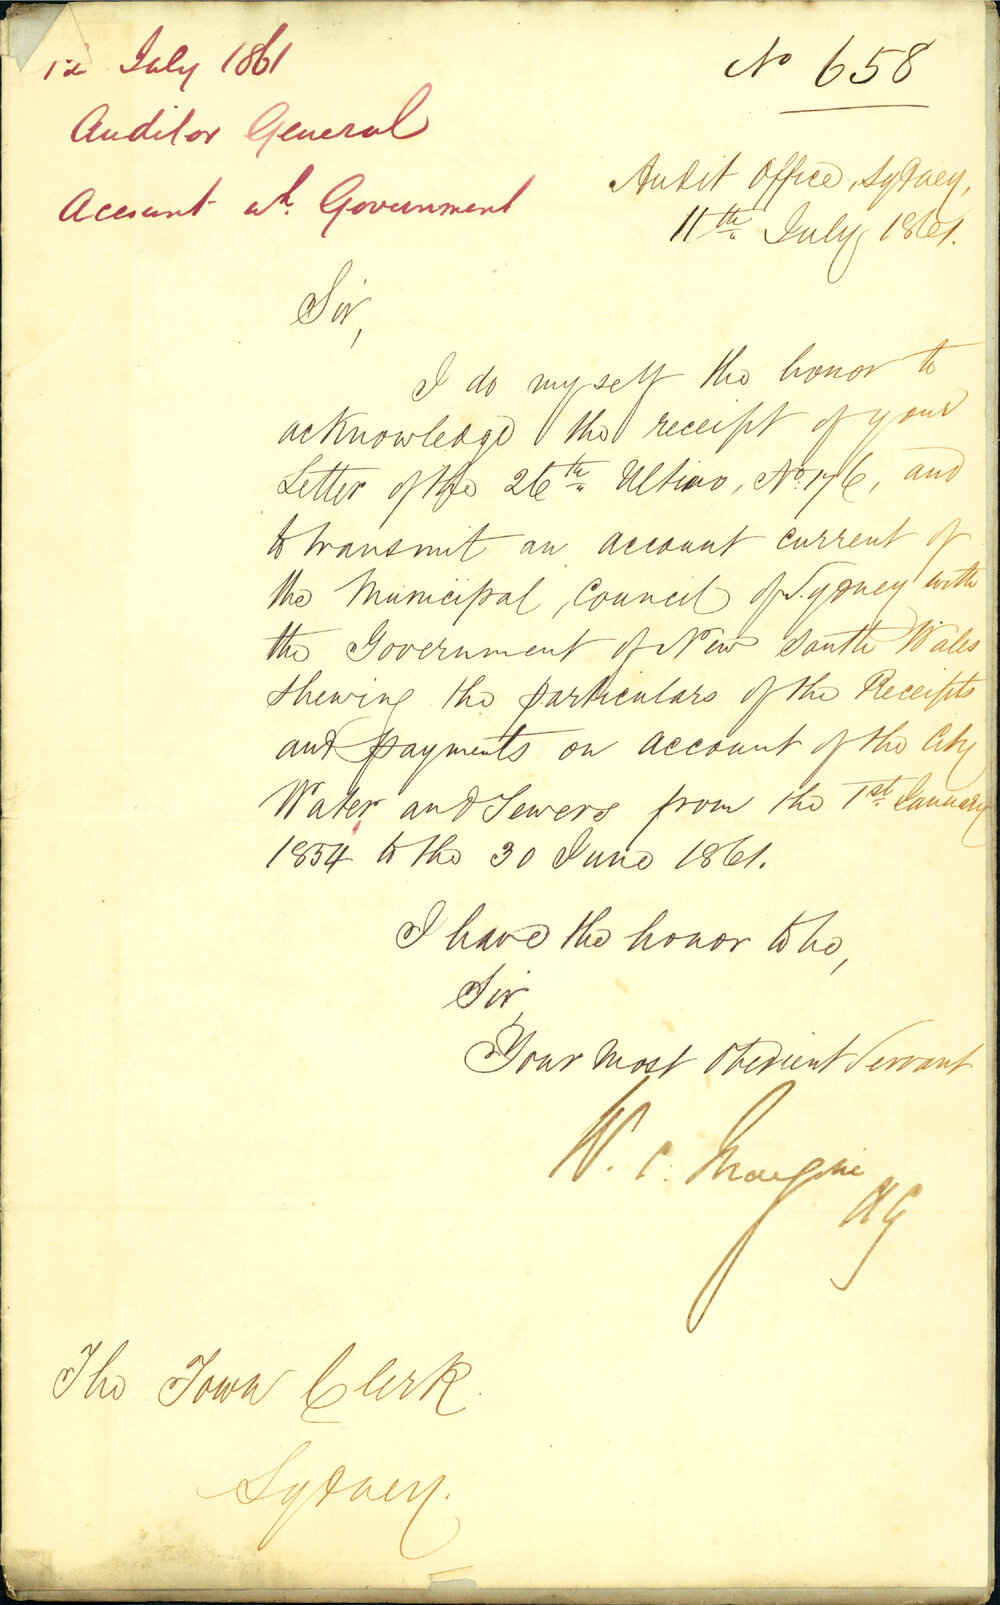 12 July 1861
Auditor General
Account wh. Government
No 658
Audit Office, Sydney,
11th July, 1861.
Sir,
I do myself the honor to
acknowledge the receipt of your
Letter of the 26th Ultimo, No. 176, and
to transmit an account current of
the Municipal Council of Sydney with
the Government of New South Wales
shewing the particulars of the Receipts
and payments on account of the City
Water and Sewers from the 1st January
1854 to the 30 June 1861.
I have the honor to be,
Sir,
Your Most Obedient Servant
W. C.
AG
The Town Clerk
Sydney.